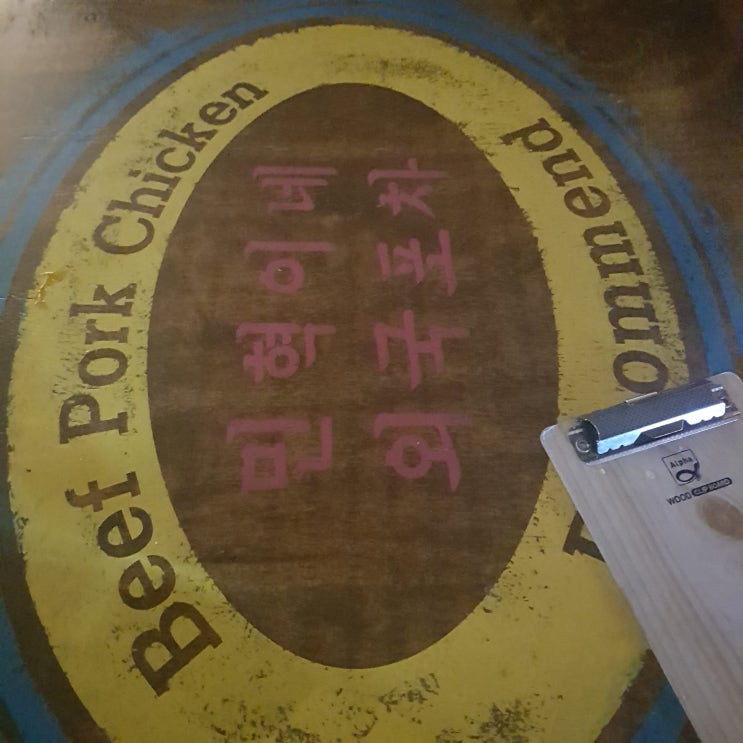 Beef Pork Chicken
민혁이네
외국포차
ommend
Alpha
WOOD CLIPBOARD